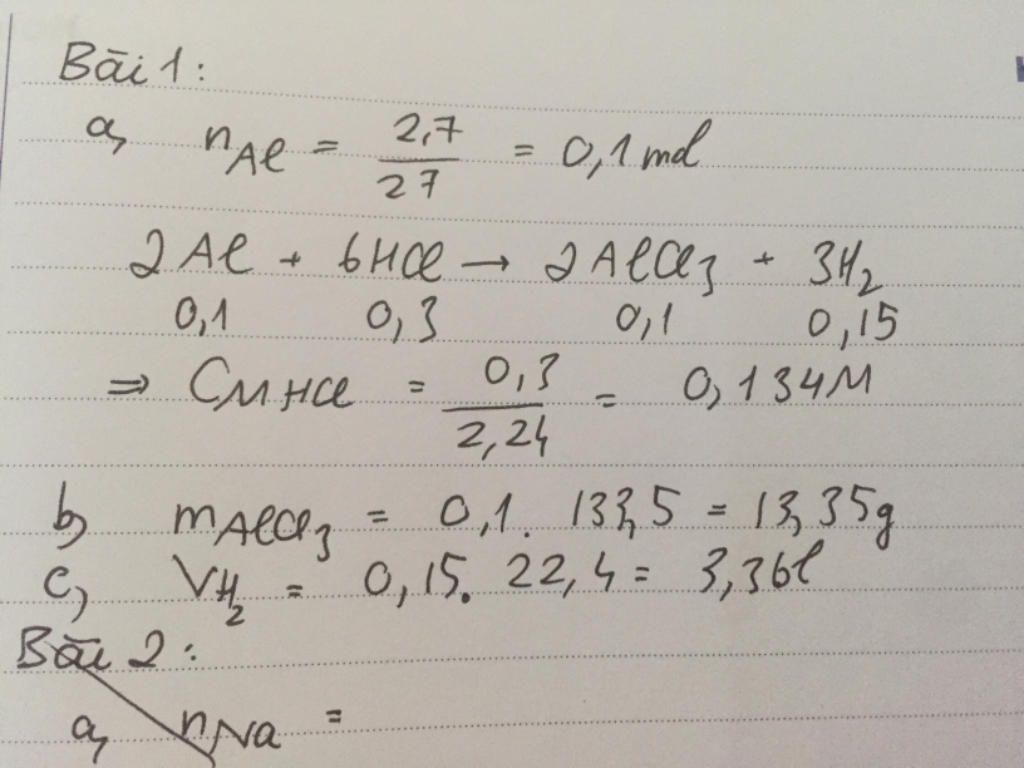 Bài 1:
a, nAl = 2,7 / 27 = 0,1 mol
2Al + 6HCl → 2AlCl₃ + 3H₂
0,1 0,3 0,1 0,15
⇒ CM HCl = 0,3 / 2,24 = 0,134M
b, mAlCl₃ = 0,1. 133,5 = 13,35g
c, VH₂ = 0,15. 22,4 = 3,36l
Bài 2:
a, nNa =